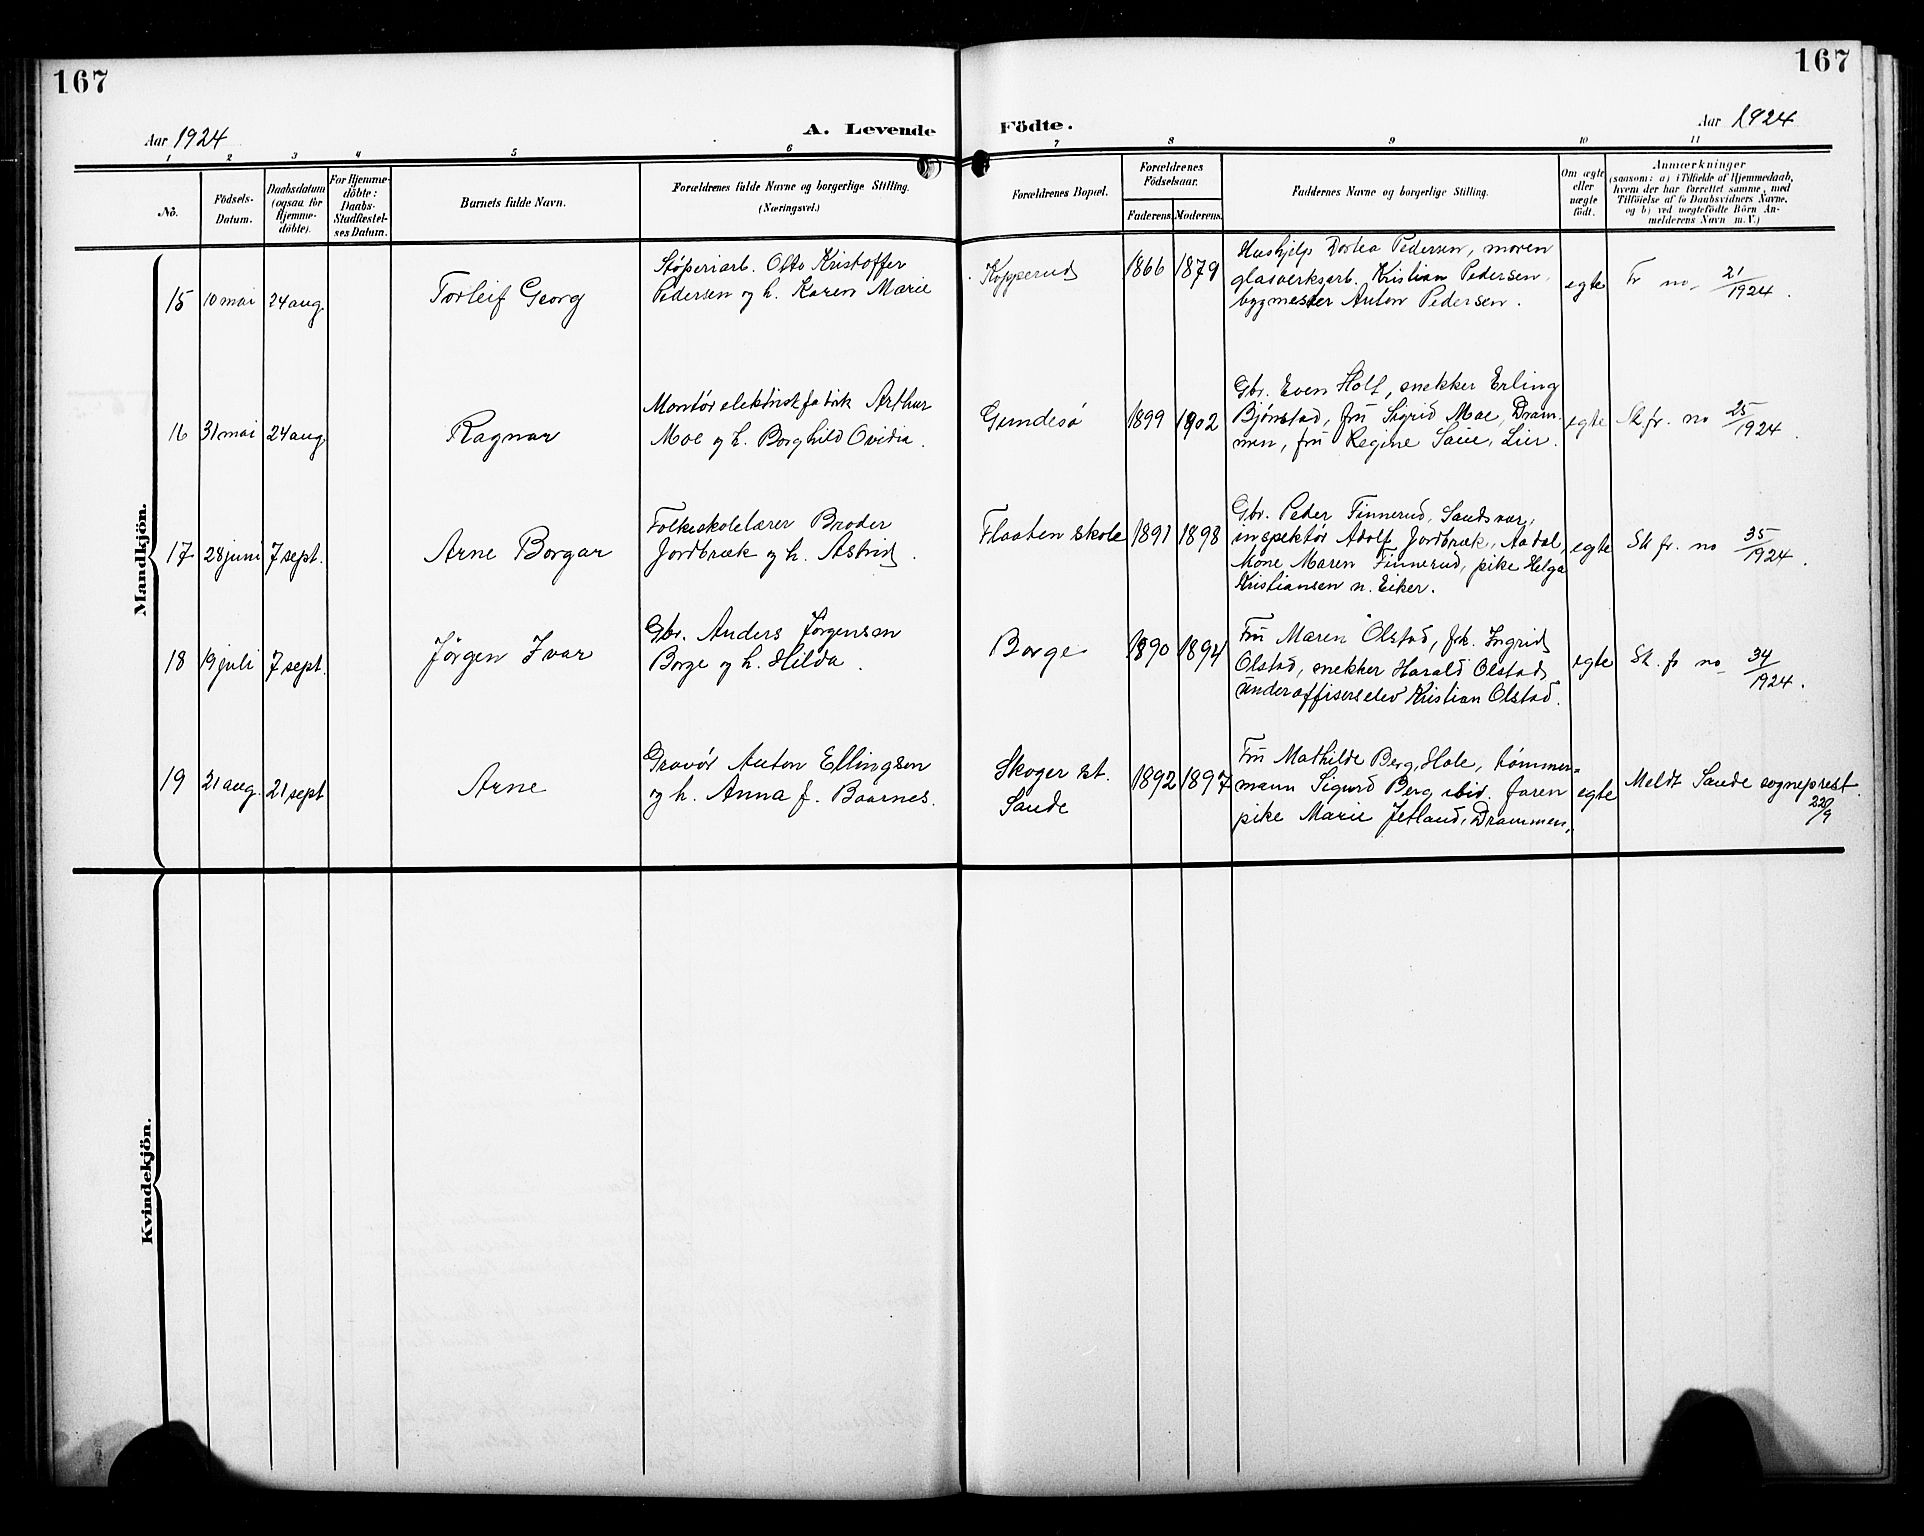 167
167
Aar 1924
A. Levende Födte.
Aar 1924
1 2 3 4 5 6 7 8 9 10 11
No.
Födsels-Datum.
Daabsdatum (ogsaa for Hjemme-döbte).
For Hjemme-döbte: Daabs-Stadfæstel-ses Datum.
Barnets fulde Navn.
Forældrenes fulde Navne og borgerlige Stilling. (Næringsvei.)
Forældrenes Bopæl.
Forældrenes Födselsaar.
Faderens. Moderens.
Faddernes Navne og borgerlige Stilling.
Om ægte eller uægte födt.
Anmærkninger
(saasom: a) i Tilfælde af Hjemmedaab,
hvem der har forrettet samme, med
Tilföielse af to Daabsvidners Navne,
og b) ved uægtefödte Börn An-
melderens Navn m. V.)
Mandkjön.
15 10 mai 24 aug. Torleif Georg
Støperiarb. Otto Kristoffer
Pedersen og h. Karen Marie
Kopperud 1866 1879
Hushjelp Dortea Pedersen, moren
glasverksarb. Kristian Pedersen,
bygmester Anton Pedersen.
egte Fr no 21/1924.
16 31 mai 24 aug. Ragnar
Montør elektrisk fabrik Arthur
Moe og h. Borghild Ovidia.
Gundesø 1899 1902
Gbr. Even Holt, snekker Erling
Bjønstad, fru Sigrid Moe, Dram-
men, fru Regine Saue, Lier.
egte Sk fr. no 25/1924.
17 28 juni 7 sept. Arne Borgar
Folkeskolelærer Broder
Jordbræk og h. Astrid.
Flaaten skole 1891 1898
Gbr. Peder Finnerud, Sandsvær,
inspektør Adolf Jordbræk, Aadal,
Kone Maren Finnerud, pike Helga
Kristiansen n. Eiker.
egte Sk fr. no 35/1924.
18 19 juli 7 sept. Jørgen Ivar
Gbr. Anders Jørgensen
Borge og h. Hilda.
Borge 1890 1894
Fru Maren Olstad, frk. Ingrid
Olstad, snekker Harald Olstad,
underoffiserselev Kristian Olstad.
egte Sk. fr no 34/1924.
19 21 aug. 21 sept Arne
Gravør Anton Ellingsen
og h. Anna f. Baarnes.
Skoger st.
Sande
1892 1897
Fru Mathilde Berg, Hole, tømmer-
mann Sigurd Berg ibid. faren
pike Marie Jetland, Drammen,
egte Meldt Sande sogneprest.
22/9
Kvindekjön.